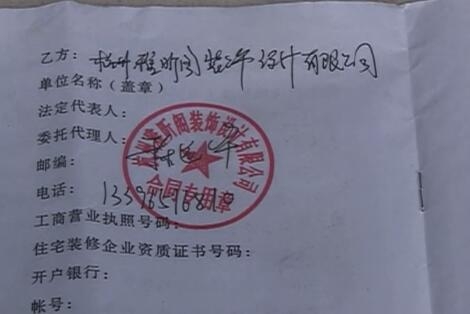 乙方：杭州雅斯阁装饰设计有限公司
单位名称（盖章）
法定代表人：
委托代理人：
邮编：
电话：
工商营业执照号码：
住宅装修企业资质证书号码：
开户银行：
帐号：
杭州雅斯阁装饰设计有限公司
合同专用章